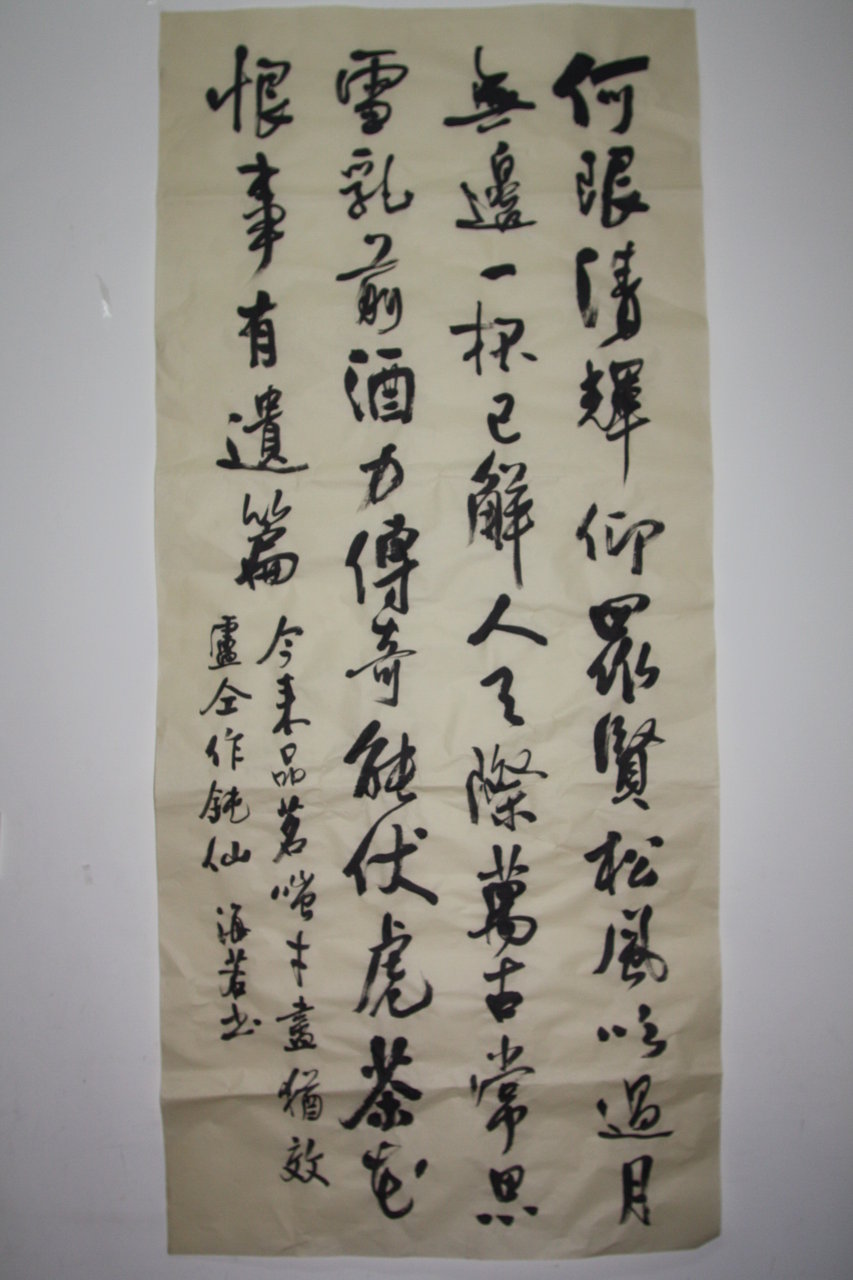 何限清輝仰眾賢松風吟過月
無邊一杯已解人天際萬古常思
雪乳前酒力傳奇能伏虎茶花
恨事有遺篇
今來品茗嗟才盡猶效
盧仝作鈍仙 海若书